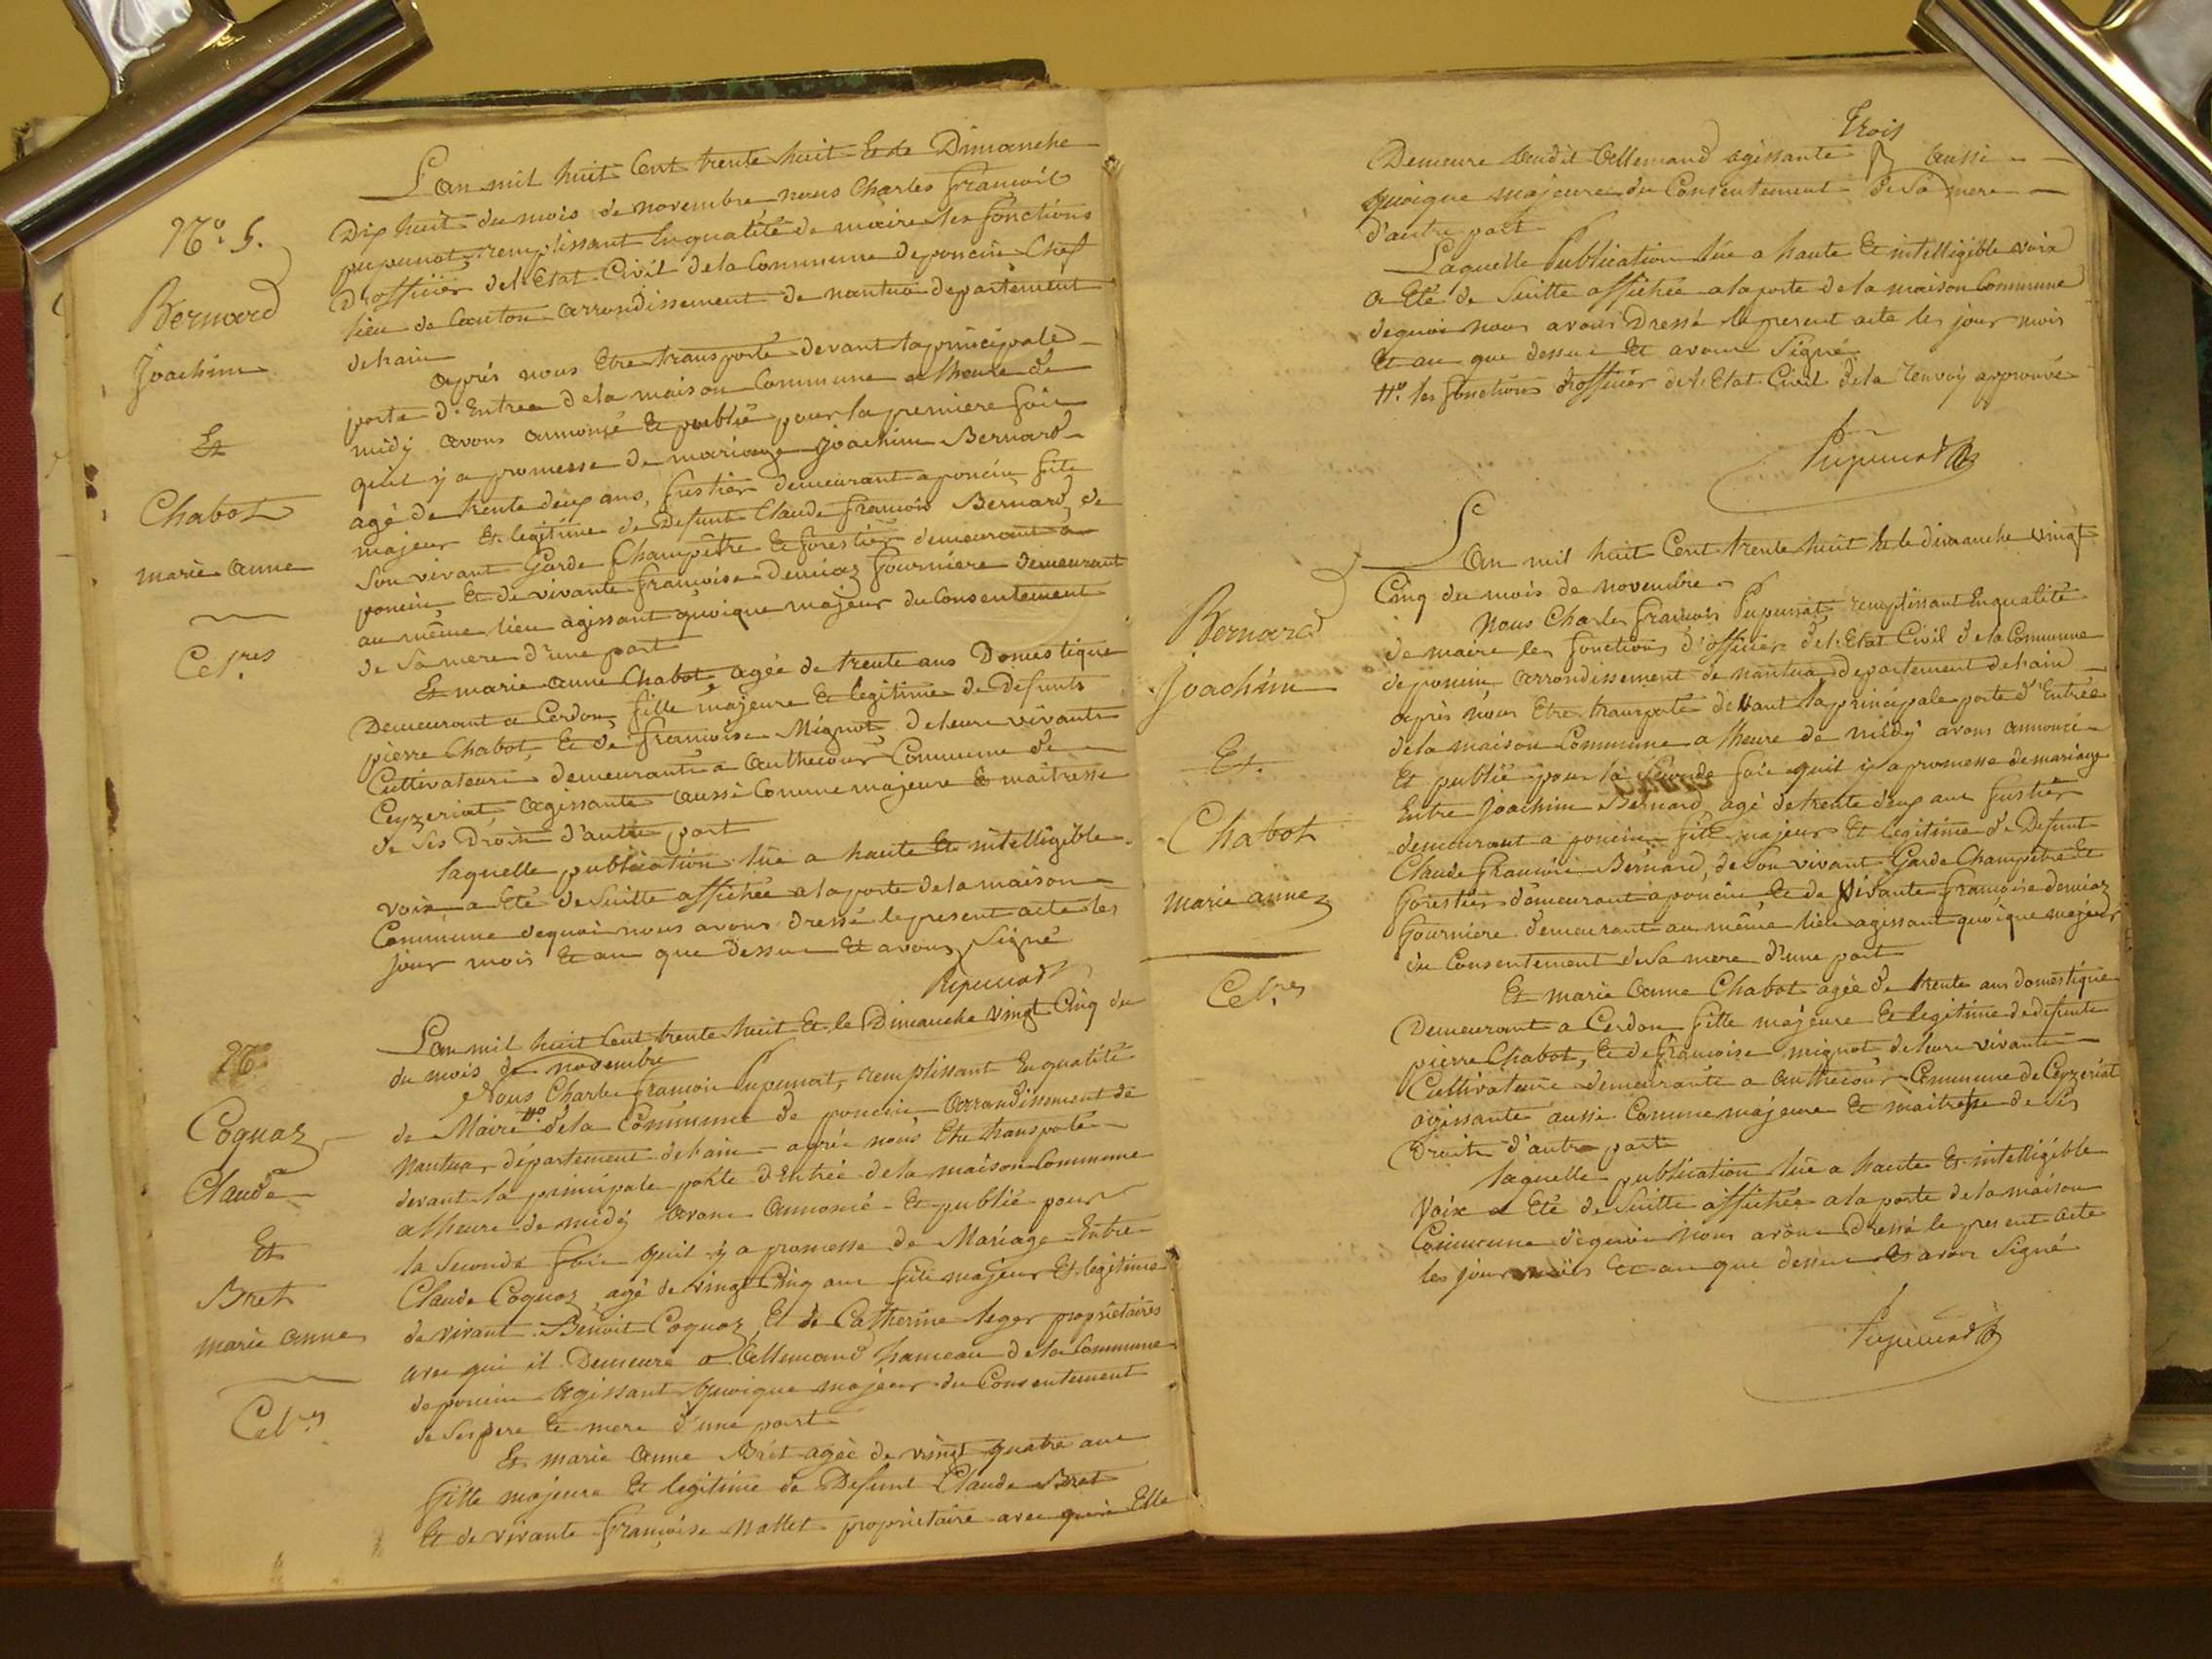 N.o 5.
Bernard
Joachim
Et
Chabot
marie anne
Cel.res
L'an mil huit Cent trente huit Et le Dimanche
Dix huit du mois de novembre nous Charles François
pupunat, remplissant Enqualité de maire les fonctions
D'officier del'Etat Civil dela Commune deponcin Chef
lieu de Canton arrondissement de nantua departement
delain
après nous Etre transporté devant laprincipale
porte d'Entrée dela maison Commune a lheure de
midy avons annoncé Et publié pour la premiere fois
quil y a promesse de mariage Joachim Bernard
agé de trente deux ans, fustier demeurant aponcin fils
majeur Et legitime de Defunt Claude François Bernard, de
Son vivant Garde Champêtre Et forestier demeurant a
poncin, Et de vivante françoise demiaz fourniere demeurant
au même lieu agissant quoique majeur du Consentement
de Sa mere d'une part
Et marie anne Chabot, agée de trente ans Domestique
Demeurant a Cerdon, fille majeure Et legitime de Defunts
pierre Chabot, Et de françoise Mignot, deleurs vivants
Cultivateurs demeurants a authecour Commune de
Ceyzeriat, agissante aussi Comme majeure Et maitresse
de Ses Droits d'autre part
laquelle publication lüe a haute Et intelligible
voix a Eté de Suitte affichée a laporte dela maison
Commune dequoi nous avons dressé lepresent acte les
jour mois Et an que Dessus Et avons Signé
Pupunat
N.o
Coquaz
Claude
Et
Bret
marie anne
Cel.res
L'an mil huit Cent trente huit Et le Dimanche vingt Cinq du
du mois de novembre
Nous Charles françois Pupunat, remplissant Enqualité
de Maire #o dela Commune de poncin arrondissement de
Nantua département delain après nous Etre transporté
devant la principale porte d'Entrée dela maison Commune
a lheure de midy avons annoncé Et publié pour
la Seconde fois quil y a promesse de Mariage Entre
Claude Coquaz, agé de vingt Cinq ans fils majeur Et legitime
de vivant Benoit Coquaz, Et de Catherine leger propriétaires
avec qui il Demeure a allemand hameau dela Commune
deponcin agissant quoique majeur du Consentement
de Ses pere Et mere d'une part
Et marie anne Bret agée de vingt quatre ans
fille majeure Et legitime de Defunt Claude Bret
Et de vivante françoise nallet propriétaire avec qui Elle
Trois
Demeure audit allemand agissante aussi
quoique majeure du Consentement de Sa mere
d'autre part
Laquelle Publication lüe a haute Et intelligible voix
a Eté de Suitte affichée a la porte de la maison Commune
dequoi nous avons Dressé le present acte les jour mois
Et an que dessus Et avons Signé
#o les fonctions d'officier del'Etat Civil dela renvoy approuvé
Pupunat
Bernard
Joachim
Et
Chabot
marie anne
Cel.res
L'an mil huit Cent trente huit Et le dimanche vingt
Cinq du mois de novembre
Nous Charles François Pupunat, remplissant Enqualité
de maire les fonctions d'officier del'Etat Civil dela Commune
deponcin arrondissement de nantua departement delain
après nous Etre transporté devant la principale porte d'Entrée
dela maison Commune a lheure de midy avons annoncé
Et publié pour la Seconde fois quil y a promesse de mariage
Entre Joachim Bernard, agé de trente deux ans fustier
demeurant a poncin fils majeur Et legitime de Defunt
Claude François Bernard, de Son vivant Garde Champêtre Et
forestier demeurant aponcin, Et de vivante françoise demiaz
fourniere demeurant au même lieu agissant quoique majeur
du Consentement de Sa mere d'une part
Et marie anne Chabot agée de trente ans domestique
Demeurant a Cerdon fille majeure Et legitime de defunts
pierre Chabot, Et de françoise mignot, deleurs vivants
Cultivateurs demeurants a authecour Commune de Ceyzeriat
agissante aussi Comme majeure Et maitresse de Ses
Droits d'autre part
laquelle publication lüe a haute Et intelligible
Voix a Eté de Suitte affichée a la porte dela maison
Commune dequoi nous avons Dressé le present acte
les jour mois Et an que dessus Et avons Signé
Pupunat